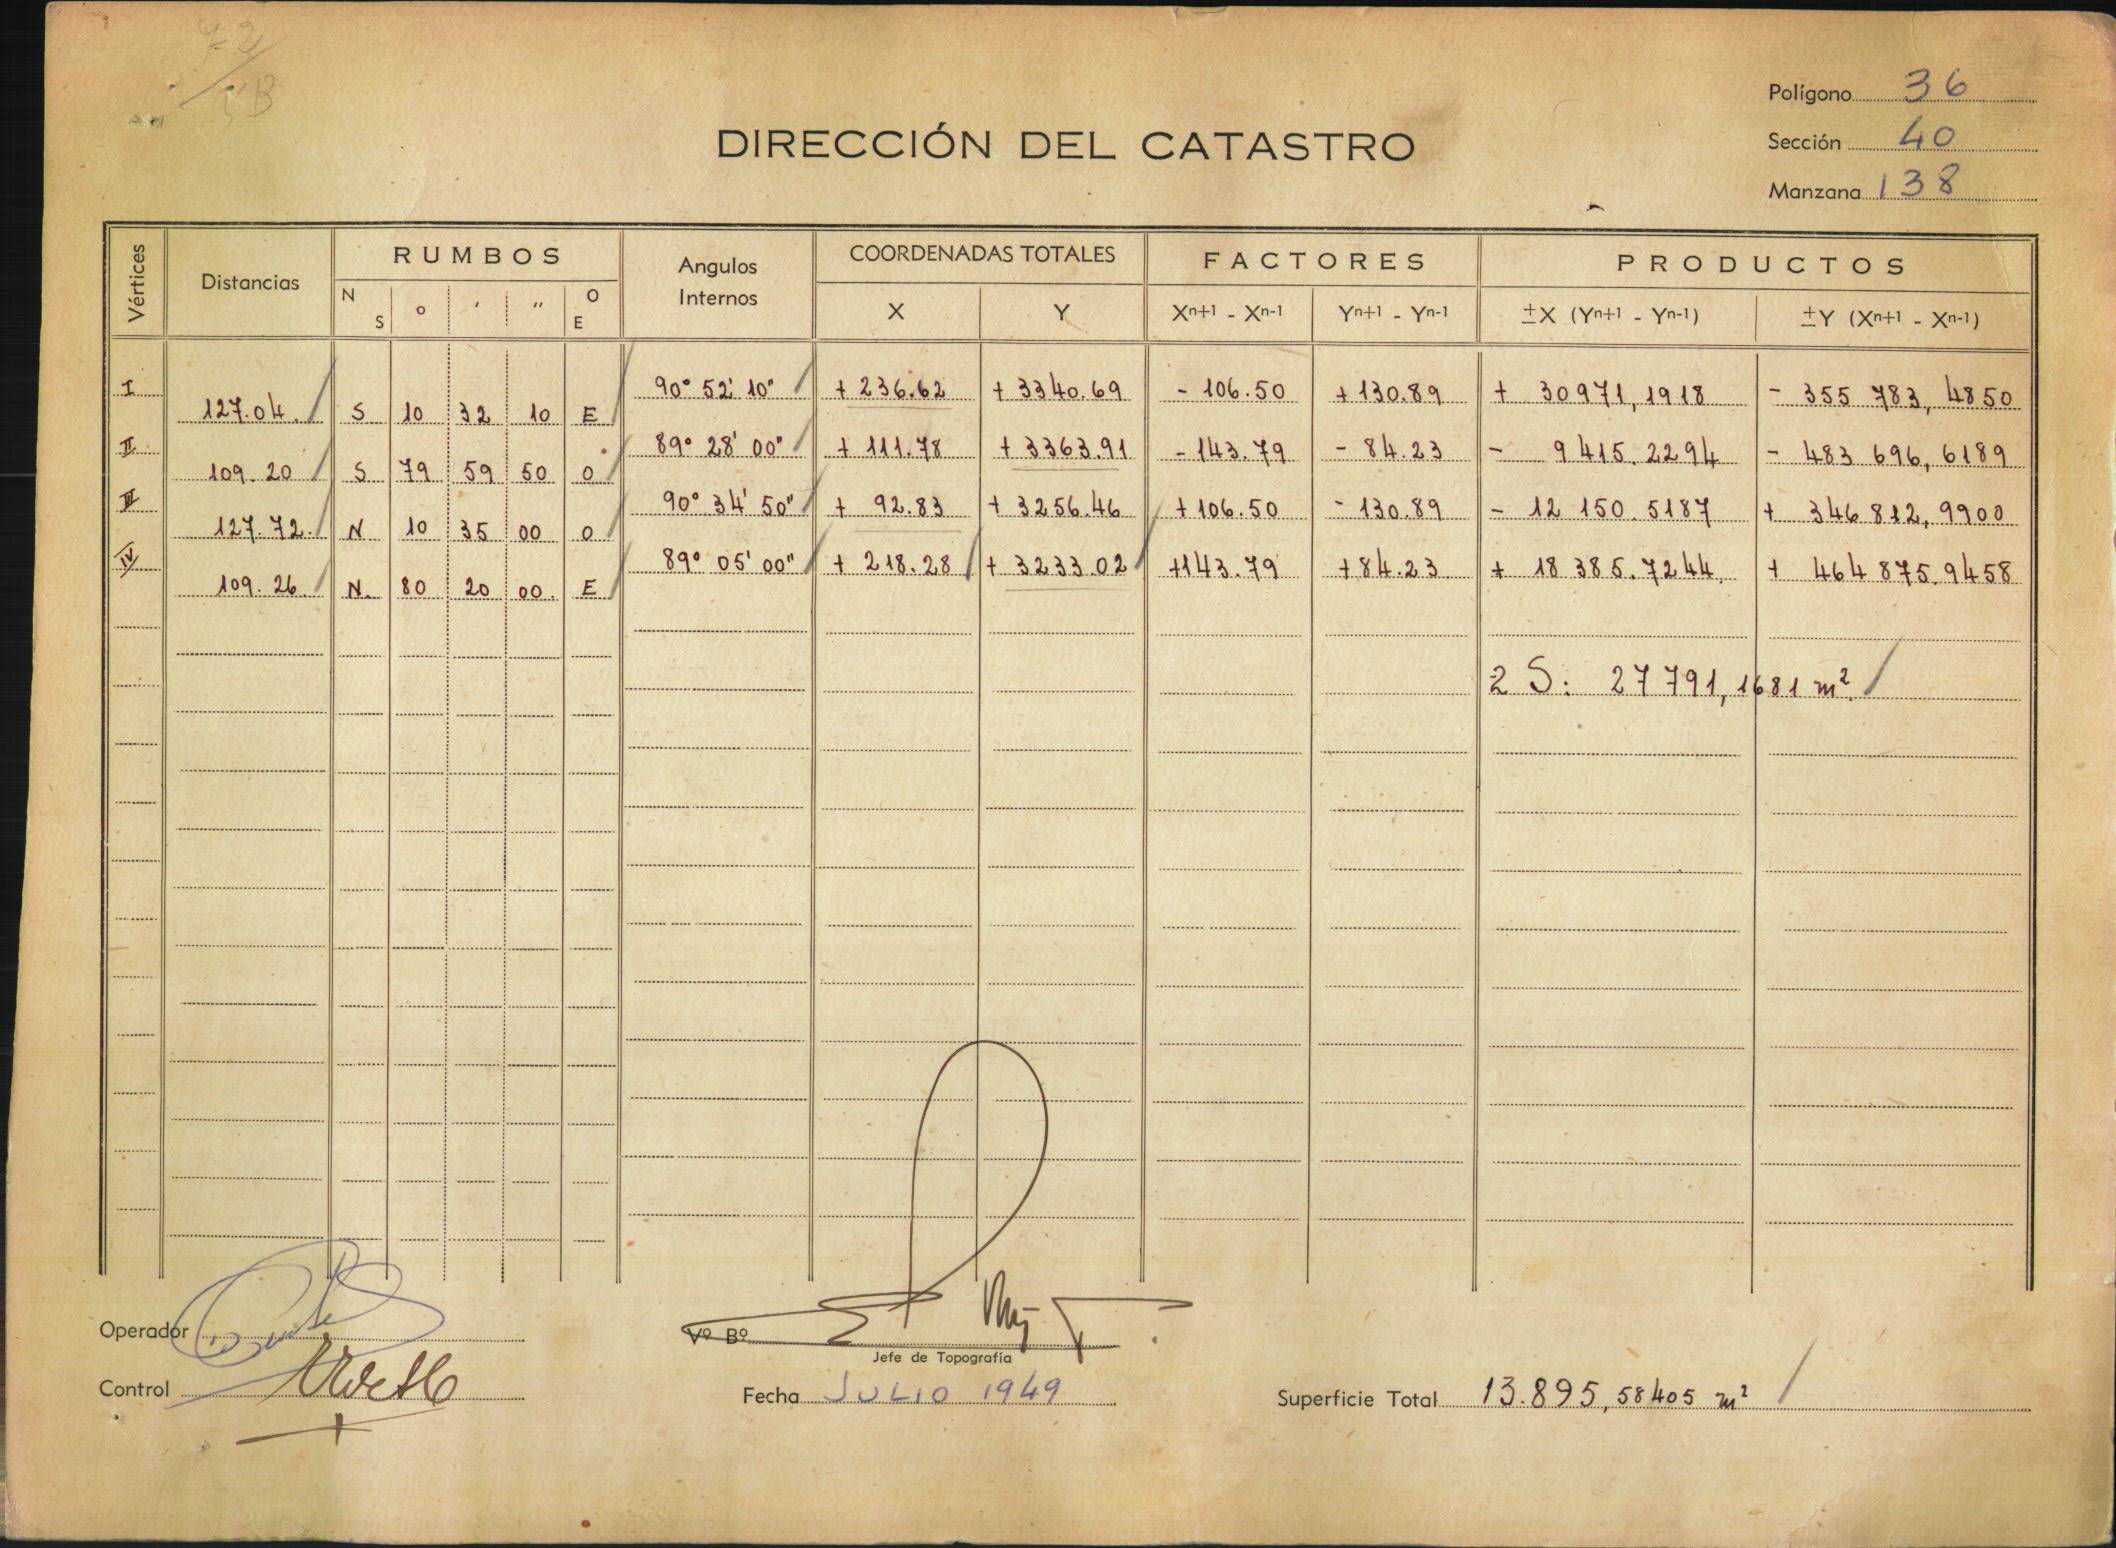 Polígono 36
DIRECCIÓN DEL CATASTRO
Sección 40
Manzana 138
Vértices Distancias RUMBOS Angulos Internos COORDENADAS TOTALES FACTORES PRODUCTOS
N S ° ' '' O E X Y Xn+1 - Xn-1 Yn+1 - Yn-1 ±X (Yn+1 - Yn-1) ±Y (Xn+1 - Xn-1)
I 90° 52' 10" + 236.62 + 3340.69 - 106.50 + 130.89 + 30971,1918 - 355 783,4850
127.04. S 10 32 10 E
II 89° 28' 00" + 111.78 + 3363.91 - 143.79 - 84.23 - 9 415.2294 - 483 696,6189
109.20 S 79 59 50 O
III 90° 34' 50" + 92.83 + 3256.46 + 106.50 - 130.89 - 12 150.5187 + 346 812,9900
127.72. N 10 35 00 O
IV 89° 05' 00" + 218.28 + 3233.02 +143.79 +84.23 + 18 385.7244 + 464 875.9458
109.26. N. 80 20 00. E
2 S: 27 791,1681 m²
Operador
Vº Bº
Jefe de Topografía
Control
Fecha JULIO 1949
Superficie Total 13.895,58405 m²